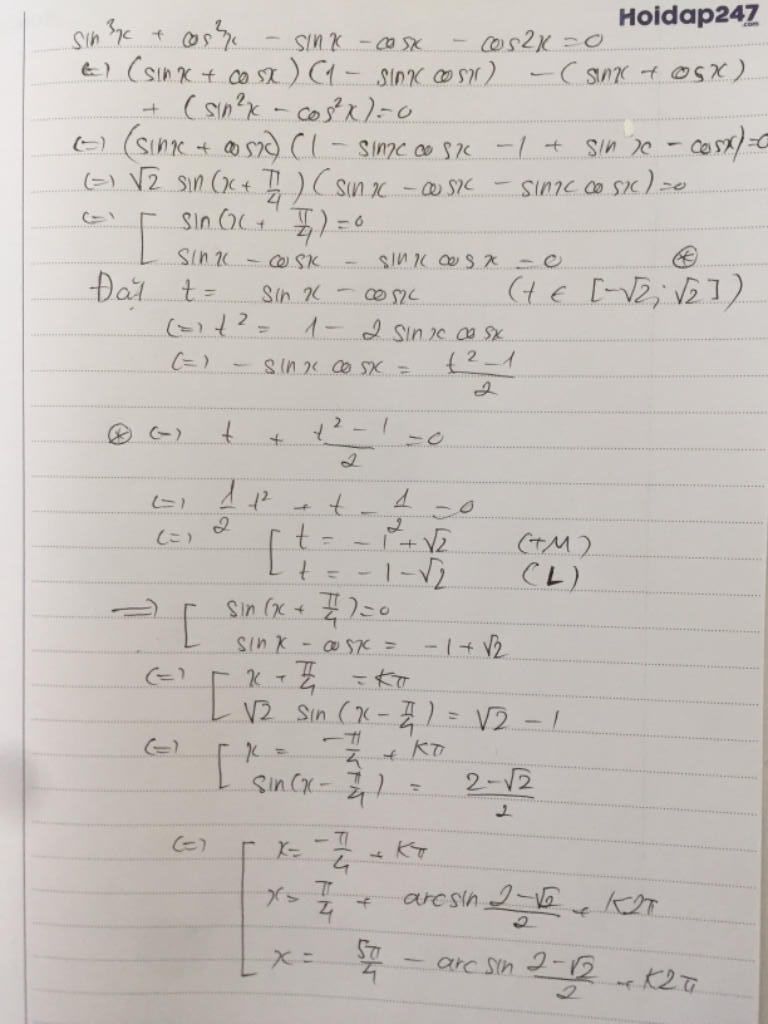 Hoidap247.com
sin³x + cos³x - sinx - cosx - cos2x = 0
(=) (sinx + cosx)(1 - sinx cosx) - (sinx + cosx)
+ (sin²x - cos²x) = 0
(=) (sinx + cosx)(1 - sinx cosx - 1 + sinx - cosx) = 0
(=) √2 sin(x + π/4)(sinx - cosx - sinx cosx) = 0
(=) [ sin(x + π/4) = 0
sinx - cosx - sinx cosx = 0 ⊛
Đặt t = sinx - cosx (t ∈ [-√2; √2])
(=) t² = 1 - 2 sinx cosx
(=) - sinx cosx = (t² - 1)/2
⊛ (=) t + (t² - 1)/2 = 0
(=) 1/2 t² + t - 1/2 = 0
(=) [ t = -1 + √2 (TM)
t = -1 - √2 (L)
=> [ sin(x + π/4) = 0
sinx - cosx = -1 + √2
(=) [ x + π/4 = kπ
√2 sin(x - π/4) = √2 - 1
(=) [ x = -π/4 + kπ
sin(x - π/4) = (2-√2)/2
(=) [ x = -π/4 + kπ
x = π/4 + arcsin (2-√2)/2 + k2π
x = 5π/4 - arcsin (2-√2)/2 + k2π